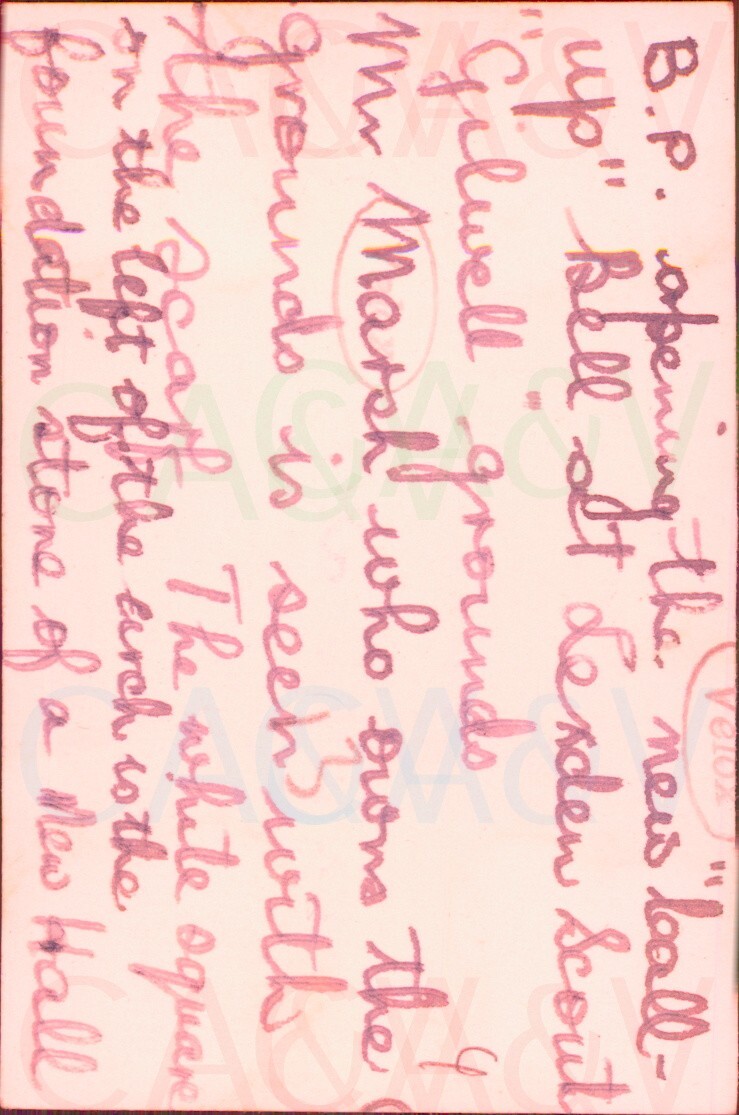 B.P. opening the new "call-
up" Bell at Lexden Scout
"Gilwell" grounds
Mr Marsh who owns the
grounds is seen with
the scarf The white square
on the left of the arch is the
foundation stone of a New Hall
Velox
3
4
CAC A&V
CAC A&V
CAC A&V
CAC A&V